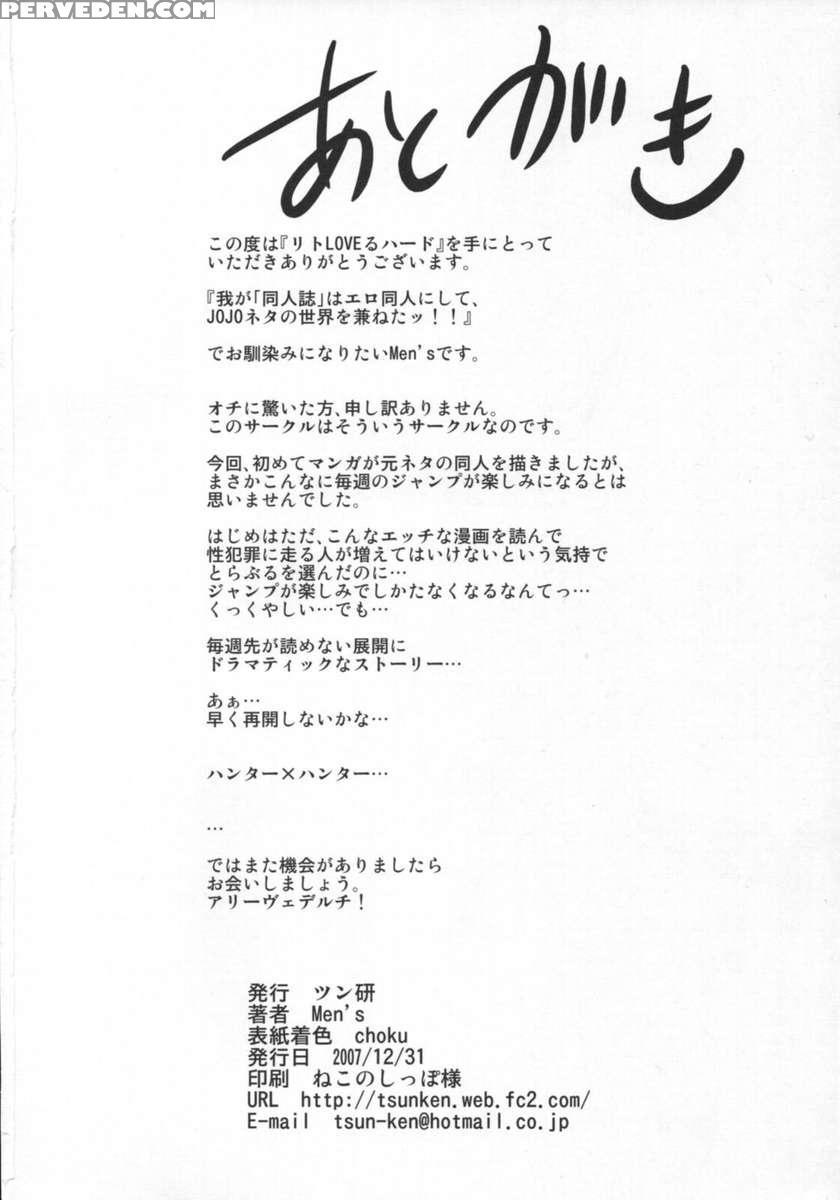 PERVEDEN.COM
あとがき
この度は『リトLOVEるハード』を手にとって
いただきありがとうございます。
『我が「同人誌」はエロ同人にして、
JOJOネタの世界を兼ねたッ！！』
でお馴染みになりたいMen'sです。
オチに驚いた方、申し訳ありません。
このサークルはそういうサークルなのです。
今回、初めてマンガが元ネタの同人を描きましたが、
まさかこんなに毎週のジャンプが楽しみになるとは
思いませんでした。
はじめはただ、こんなエッチな漫画を読んで
性犯罪に走る人が増えてはいけないという気持で
とらぶるを選んだのに…
ジャンプが楽しみでしかたなくなるなんてっ…
くっくやしい…でも…
毎週先が読めない展開に
ドラマティックなストーリー…
あぁ…
早く再開しないかな…
ハンター×ハンター…
…
ではまた機会がありましたら
お会いしましょう。
アリーヴェデルチ！
発行　ツン研
著者　Men's
表紙着色　choku
発行日　2007/12/31
印刷　ねこのしっぽ様
URL　http://tsunken.web.fc2.com/
E-mail　tsun-ken@hotmail.co.jp